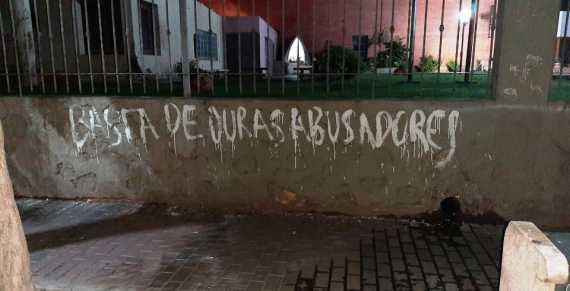 BASTA DE CURAS ABUSADORES